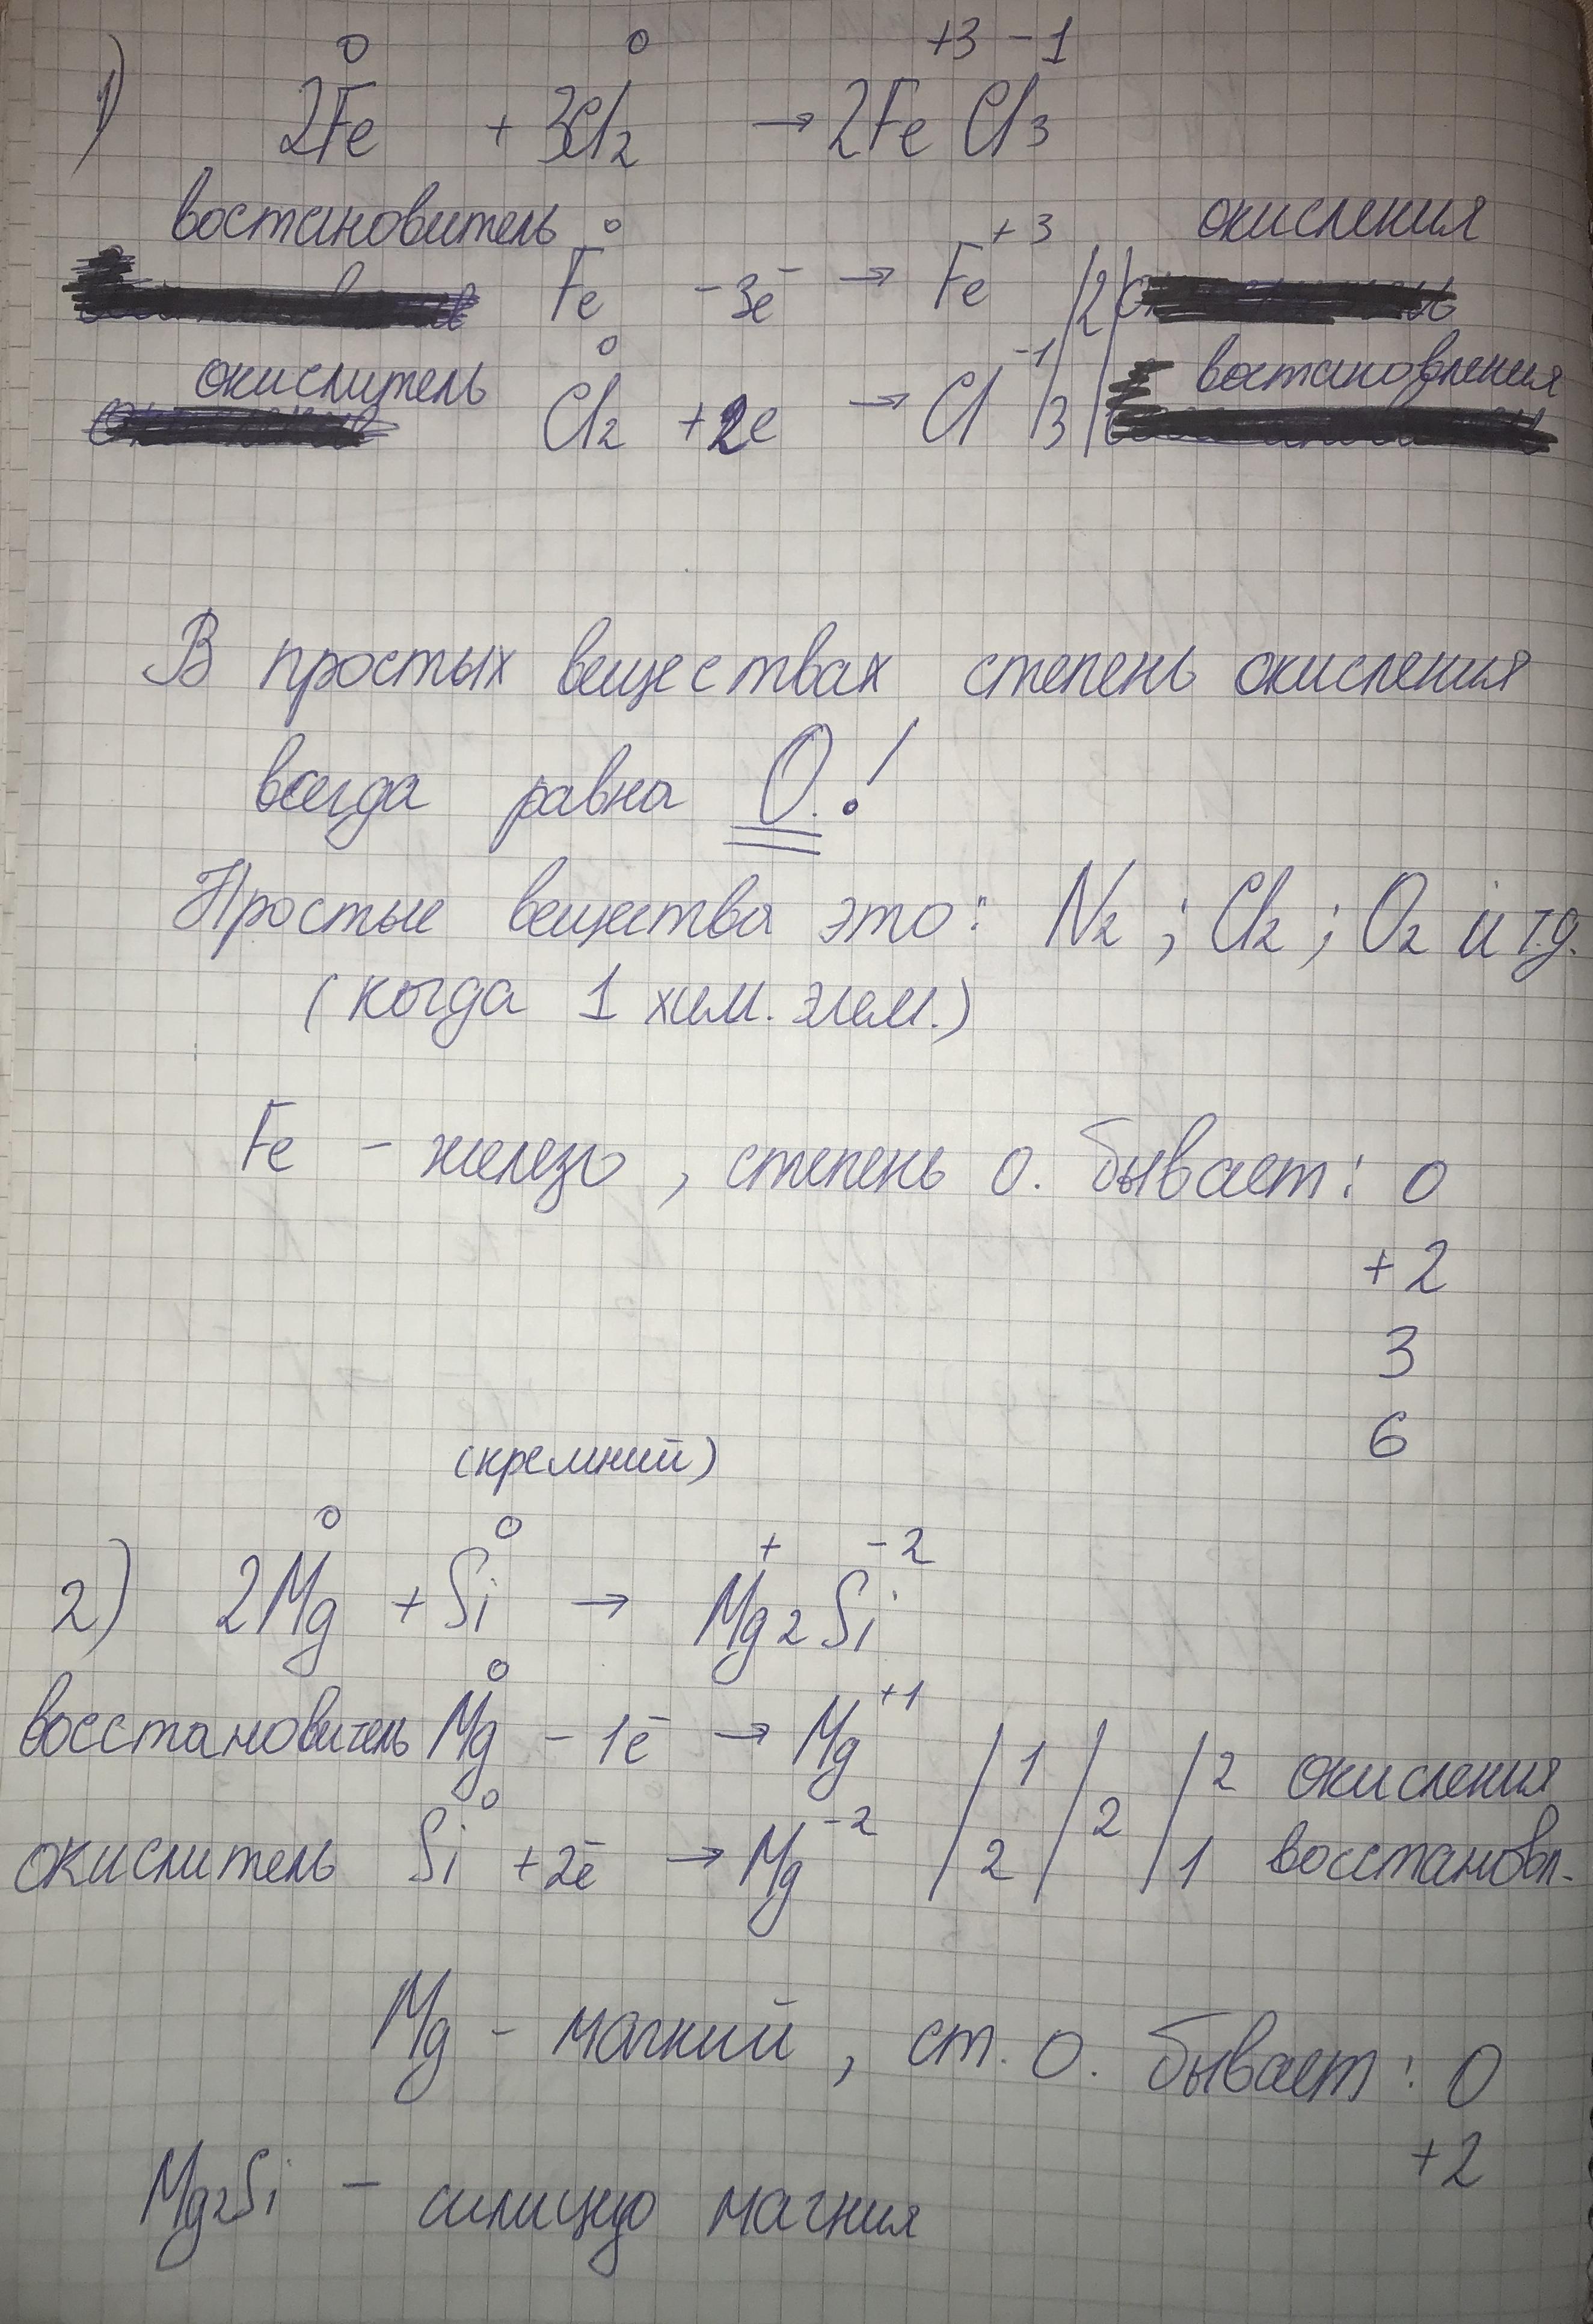 0 0 +3 -1
1) 2Fe + 3Cl₂ → 2FeCl₃
востановитель 0 +3 окисления
Fe -3e⁻ → Fe /2/
окислитель 0 -1 востановления
Cl₂ +2e → Cl /3/
В простых веществах степень окисления
всегда равна 0!
Простые вещества это: N₂; Cl₂; O₂ и т.д.
(когда 1 хим. элем.)
Fe - железо, степень о. бывает: 0
+2
3
6
(кремний)
0 0 + -2
2) 2Mg + Si → Mg₂Si
0 +1
восстановитель Mg - 1e⁻ → Mg / 1 / / 2 окисления
0 -2 2
окислитель Si +2e⁻ → Mg / 2 / / 1 восстановл.
Mg - магний, ст. о. бывает: 0
+2
Mg₂Si - силицид магния